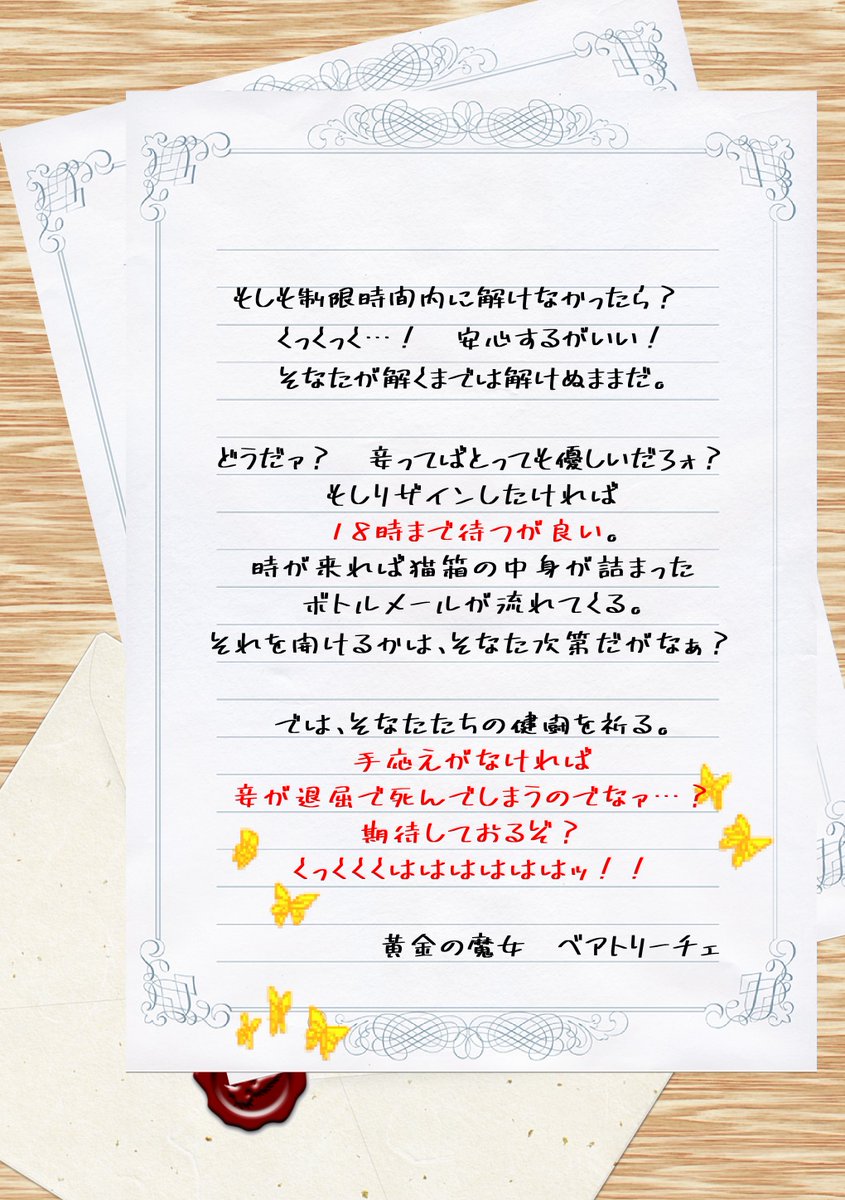 もしも制限時間内に解けなかったら？
くっくっく…！　安心するがいい！
そなたが解くまでは解けぬままだ。
どうだァ？　妾ってばとっても優しいだろォ？
もしリザインしたければ
１８時まで待つが良い。
時が来れば猫箱の中身が詰まった
ボトルメールが流れてくる。
それを開けるかは、そなた次第だがなぁ？
では、そなたたちの健闘を祈る。
手応えがなければ
妾が退屈で死んでしまうのでなァ…？
期待しておるぞ？
くっくくくはははははははッ！！
黄金の魔女　ベアトリーチェ